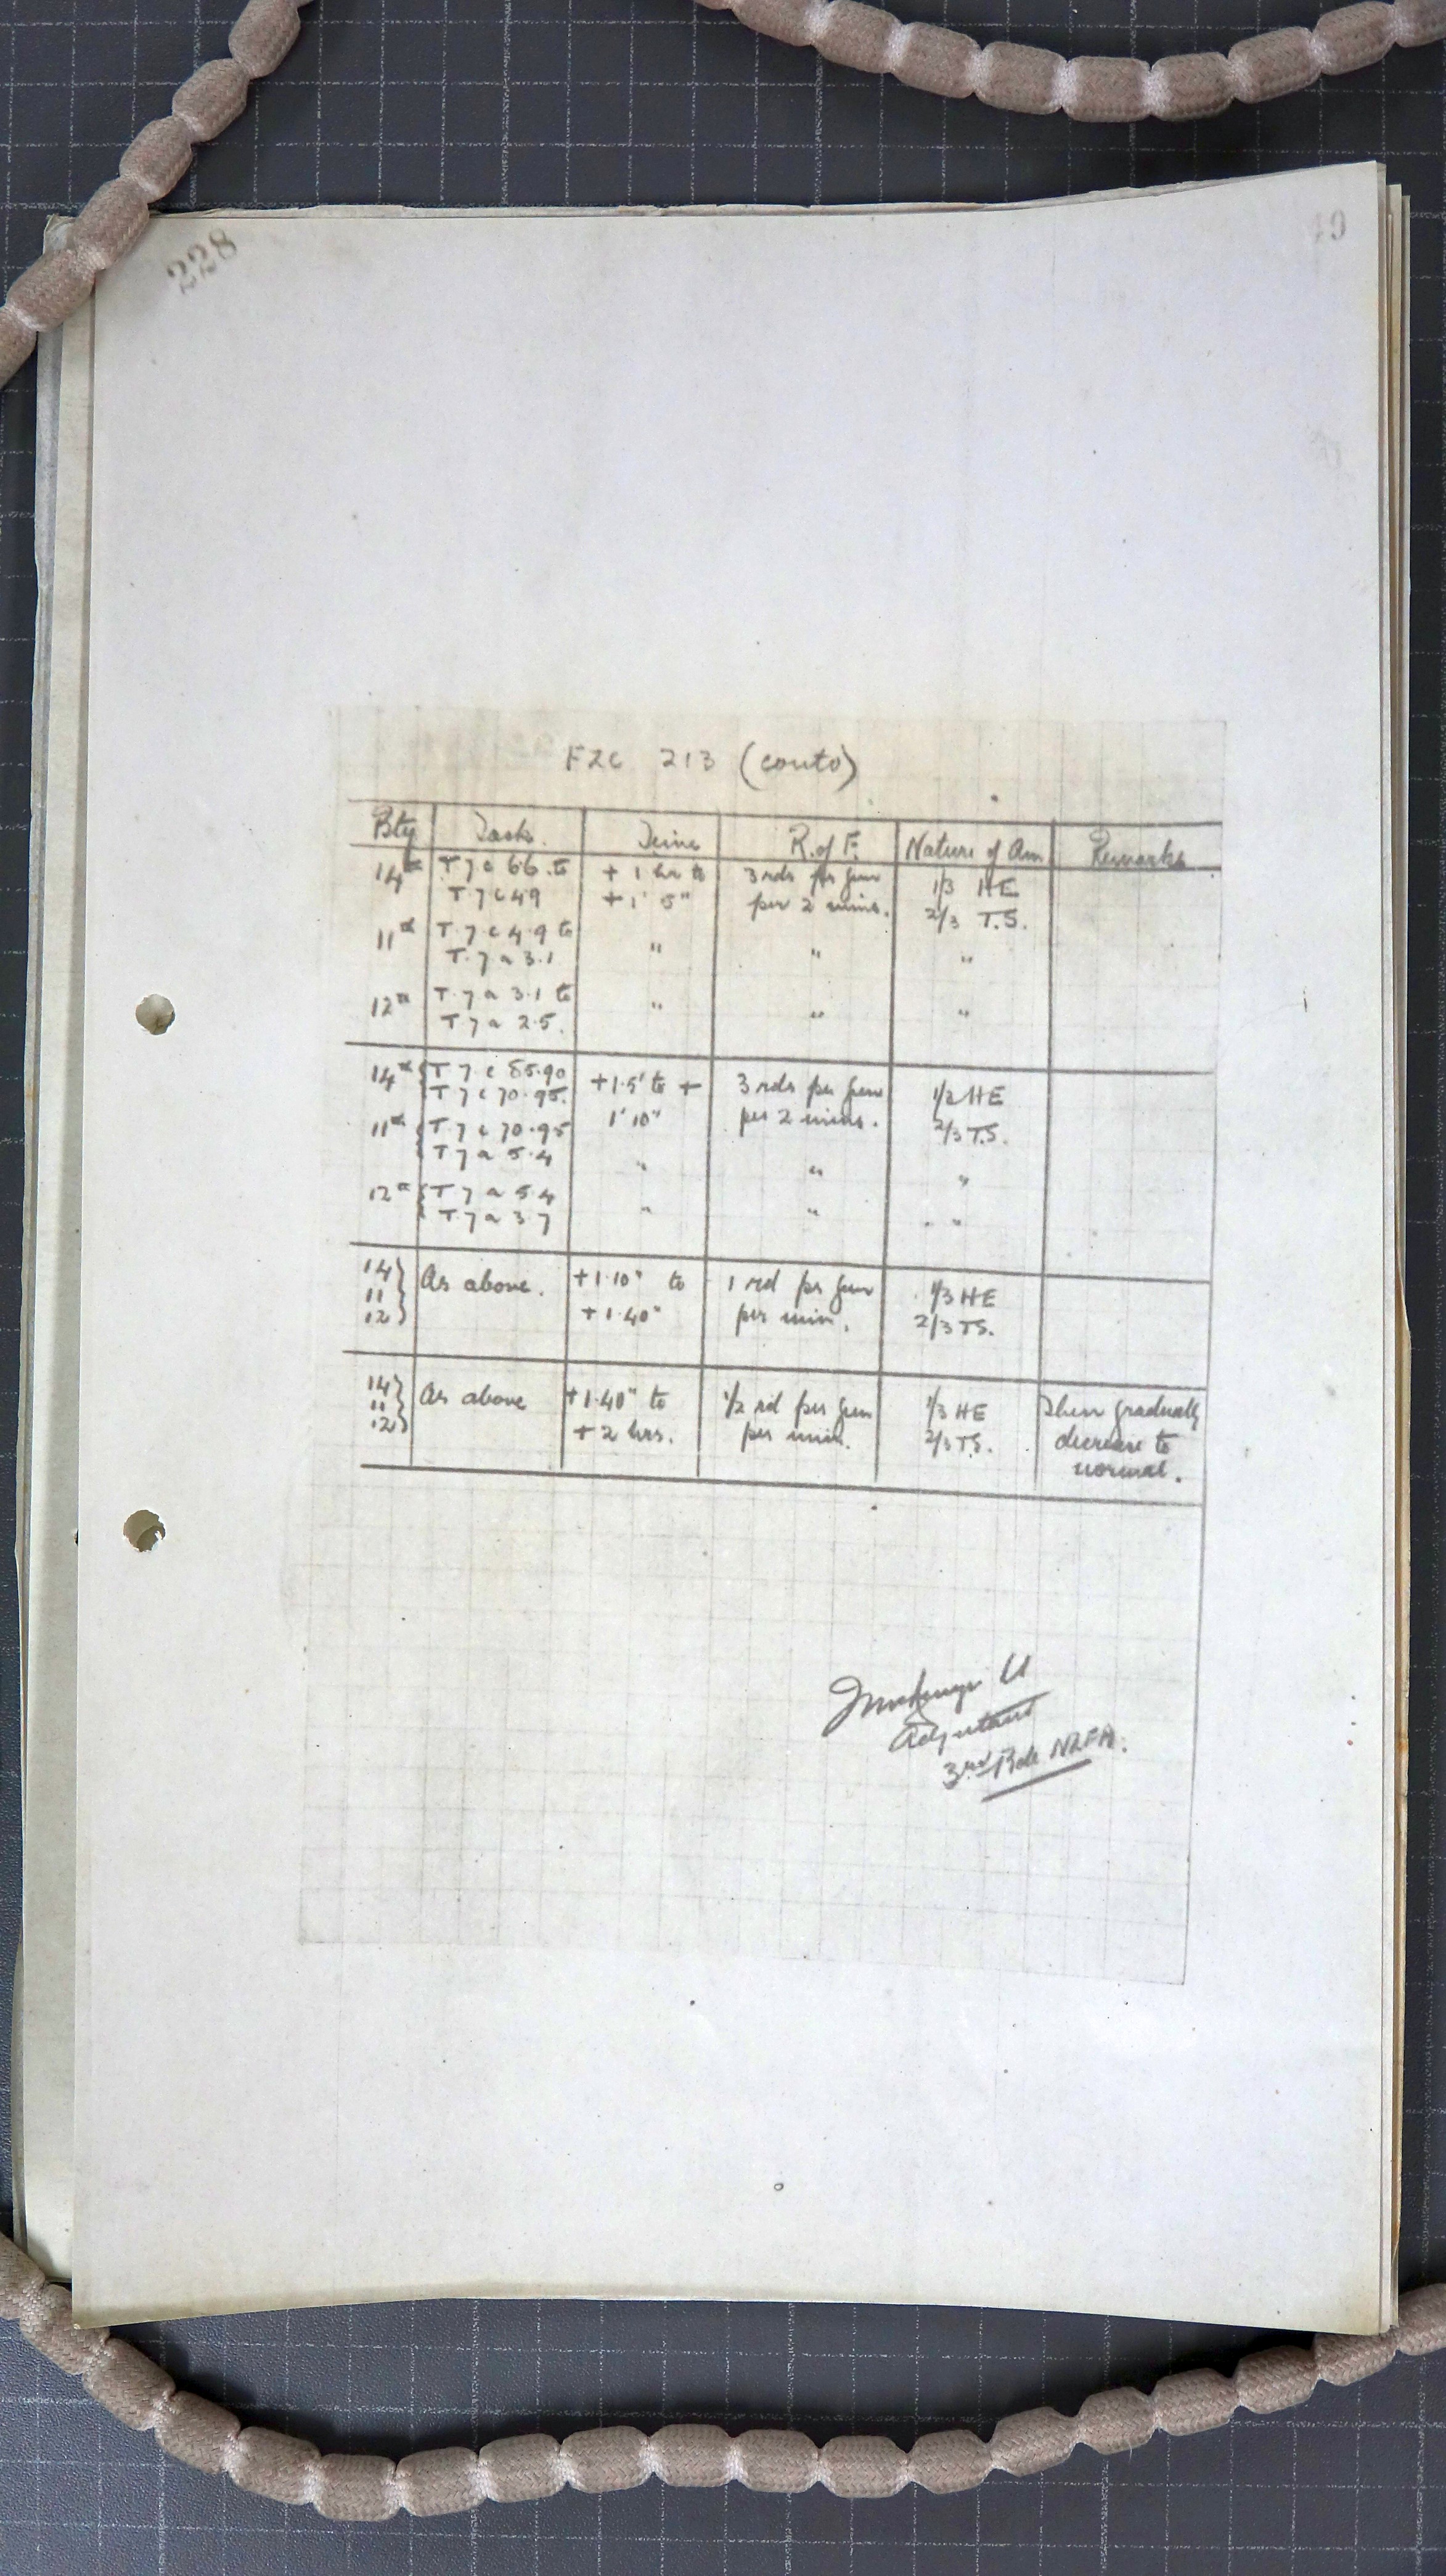 228
49
FZC 213 (contd)
Bty Task. Time R. of F. Nature of Am. Remarks
14th T 7 c 66. to + 1 hr to 3 rds per gun 1/3 HE
T 7 c 49 + 1' 5" per 2 mins. 2/3 T.S.
11th T. 7 c 4.9 to " " "
T. 7 a 3.1
12th T. 7 a 3.1 to " " "
T 7 a 2.5.
14th { T 7 c 85.90 +1.5' to + 3 rds per gun 1/2 HE
T 7 c 70.95. 1' 10" per 2 mins. 2/3 T.S.
11th { T 7 c 70.95
T 7 a 5.4 " " "
12th { T 7 a 5.4
T. 7 a 3.7 " " "
14 } As above. +1.10" to 1 rd per gun 1/3 HE
11 } +1.40" per min. 2/3 TS.
12 }
14 } As above +1.40" to 1/2 rd per gun 1/3 HE Then gradually
11 } + 2 hrs. per min. 2/3 TS. decrease to
12 } normal.
Lt
Adjutant
3rd Bde NZFA.